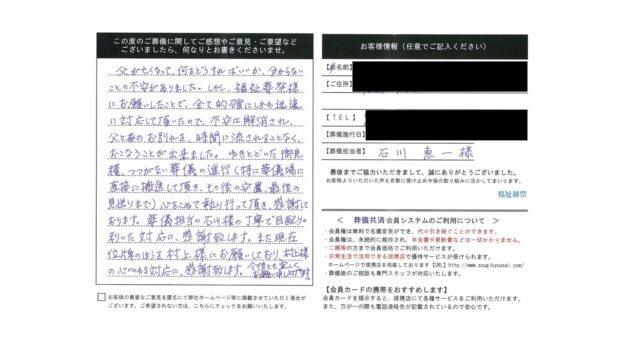 この度のご葬儀に関してご感想やご意見・ご要望など
ございましたら、何なりとお書きくださいませ。
父が亡くなって、何をどうすればいいか、分からない
ことの不安がありました。しかし、福祉葬祭様
にお願いしたことで、全て的確にしかも迅速
に対応して頂いたので、不安は解消され、
父とのお別れを、時間に流されることなく、
おこなうことが出来ました。ゆきとどいた御見
積、つつがない葬儀の進行(特に葬儀場に
直接に搬送して頂き、その後の安置、最後の
見送りまで)心をこめて執り行って頂き、感謝して
おります。葬儀担当の石川様の丁寧で目配りの
利いた対応に、感謝致します。また現在
位牌のほうを村上様にお願いしており、村上様
の心のこもる対応に、感謝致します。今後とも宜しく
お願い申し上げます。
お客様の貴重なご意見を匿名にて弊社ホームページ等に掲載させていただく場合が
ございます。ご希望されない方は、こちらにチェックをお願いいたします。
お客様情報(任意でご記入ください)
【お名前】
【ご住所】
【TEL】
【葬儀施行日】
【葬儀担当者】 石川 恵一 様
最後までご協力いただきまして、誠にありがとうございました。
お客様よりいただいた声を真摯に受け止め今後の取り組みに活かしてまいります。
福祉葬祭
< 葬儀共済会員システムのご利用について >
・会員権は無料で名義変更ができ、代々引き継ぐことができます。
・会員権は、永続的に維持され、年会費や更新費などは一切かかりません。
・二親等の方まで会員価格でご利用いただけます。
・日常生活で活用できる提携店で優待サービスが受けられます。
ホームページで提携店を掲載しております【URL】http://www.sougikyousai.com/
・葬儀後のご相談も専門スタッフが対応いたします。
【会員カードの携帯をおすすめします】
会員カードを提示すると、提携店にて各種サービスをご利用いただけます。
また、万が一の際も電話連絡先が記載されているので安心です。